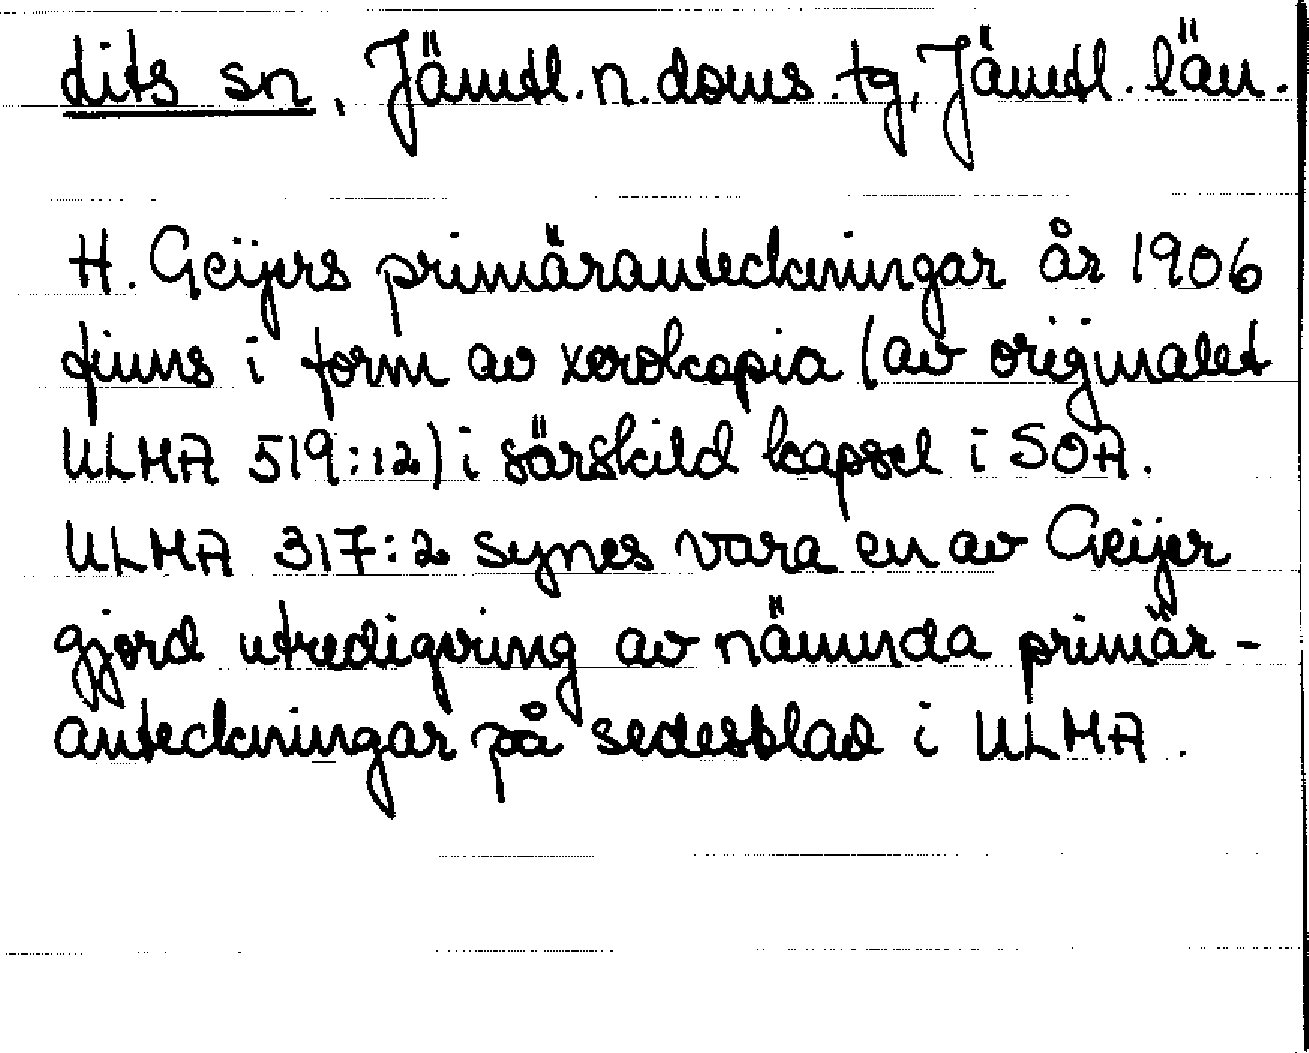 Lits sn, Jämtl. n. doms. tg, Jämtl. län.
H. Geijers primäranteckningar år 1906
finns i form av xerokopia (av originalet
ULMA 519:12) i särskild kapsel i SOA.
ULMA 317:2 synes vara en av Geijer
gjord utredigering av nämnda primär-
anteckningar på sedesblad i ULMA.